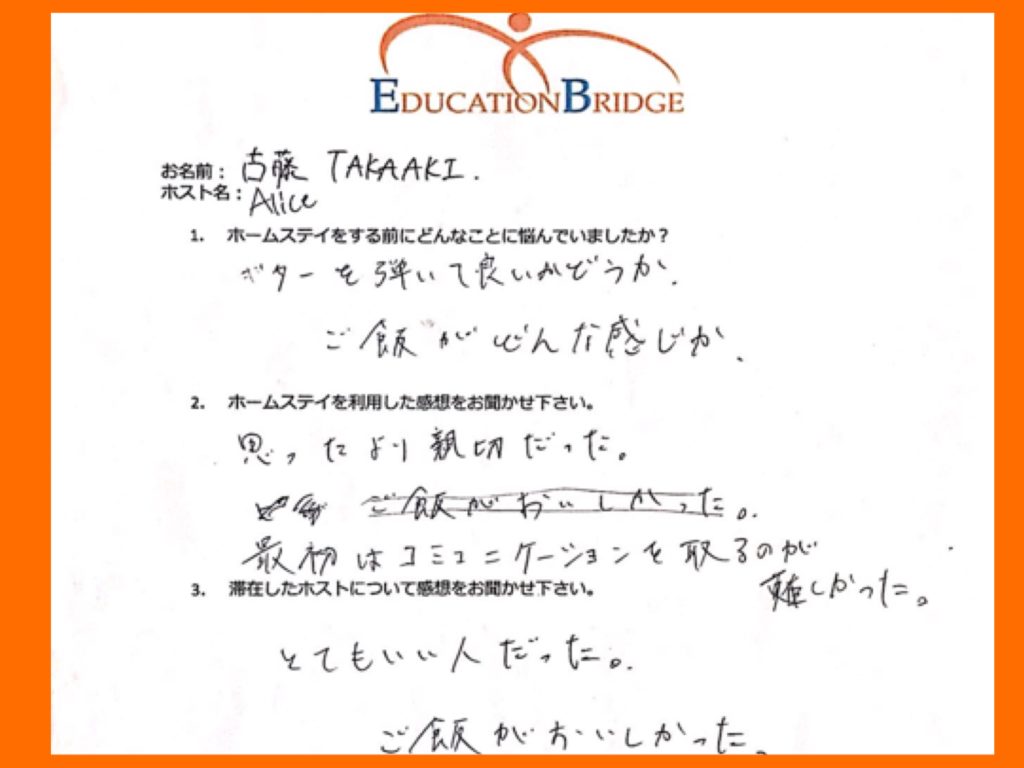 EDUCATIONBRIDGE
お名前： 古藤 TAKAAKI.
ホスト名： Alice
1. ホームステイをする前にどんなことに悩んでいましたか？
ギターを弾いて良いかどうか.
ご飯がどんな感じか.
2. ホームステイを利用した感想をお聞かせ下さい。
思ったより親切だった。
ご飯がおいしかった。
最初はコミュニケーションを取るのが
難しかった。
3. 滞在したホストについて感想をお聞かせ下さい。
とてもいい人だった。
ご飯がおいしかった。